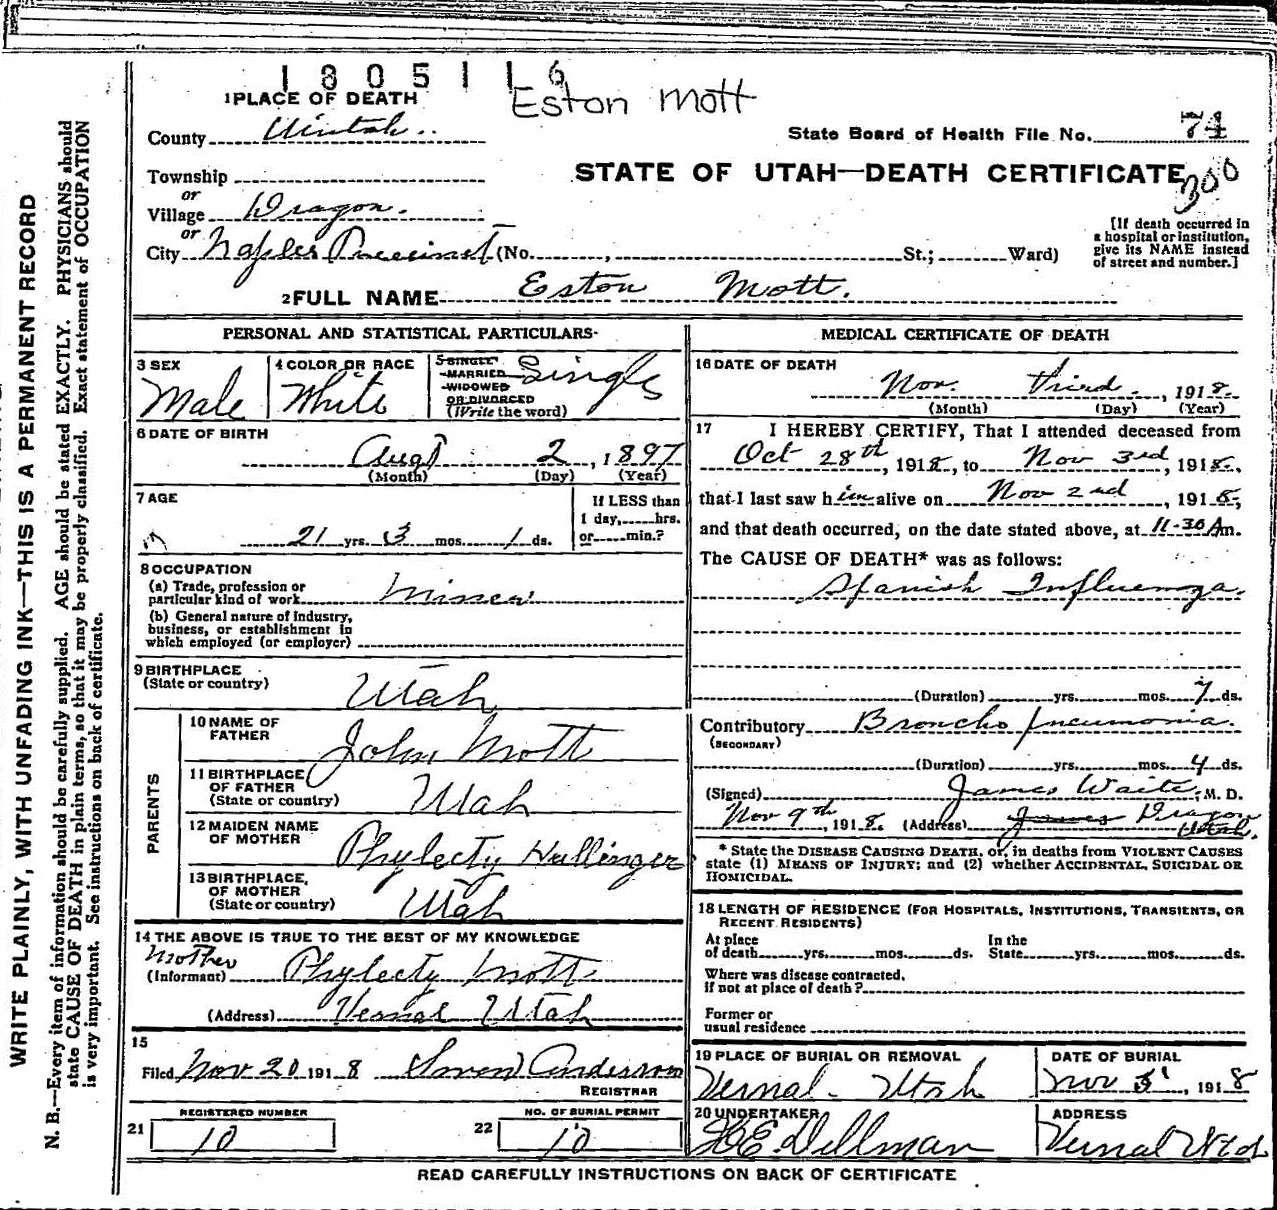 1 8 0 5 1 1 6
Eston Mott
1 PLACE OF DEATH
County Uintah
State Board of Health File No. 74
Township
STATE OF UTAH—DEATH CERTIFICATE
300
or
Village Dragon.
or
City Naples Precinct (No. , St.; Ward)
[If death occurred in
a hospital or institution,
give its NAME instead
of street and number.]
2 FULL NAME Eston Mott.
PERSONAL AND STATISTICAL PARTICULARS
3 SEX
Male
4 COLOR OR RACE
White
5 SINGLE
MARRIED
WIDOWED
OR DIVORCED
(Write the word)
Single
6 DATE OF BIRTH
Augt 2, 1897
(Month) (Day) (Year)
7 AGE
21 yrs. 3 mos. 1 ds.
If LESS than
1 day, hrs.
or min.?
8 OCCUPATION
(a) Trade, profession or
particular kind of work Miner
(b) General nature of industry,
business, or establishment in
which employed (or employer)
9 BIRTHPLACE
(State or country) Utah
PARENTS
10 NAME OF
FATHER John Mott
11 BIRTHPLACE
OF FATHER
(State or country) Utah
12 MAIDEN NAME
OF MOTHER Phylecty Hullinger
13 BIRTHPLACE,
OF MOTHER
(State or country) Utah
14 THE ABOVE IS TRUE TO THE BEST OF MY KNOWLEDGE
Mother
(Informant) Phylecty Mott
(Address) Vernal Utah
15
Filed Nov 20 1918 Soren Anderson
REGISTRAR
REGISTERED NUMBER
21 10
NO. OF BURIAL PERMIT
22 10
MEDICAL CERTIFICATE OF DEATH
16 DATE OF DEATH
Nov. third, 1918.
(Month) (Day) (Year)
17 I HEREBY CERTIFY, That I attended deceased from
Oct 28th, 1918, to Nov 3rd, 1918.,
that I last saw him alive on Nov 2nd, 1918,
and that death occurred, on the date stated above, at 11-30 Am.
The CAUSE OF DEATH* was as follows:
Spanish Influenza.
(Duration) yrs. mos. 7 ds.
Contributory Broncho pneumonia.
(SECONDARY)
(Duration) yrs. mos. 4 ds.
(Signed) James Waite, M. D.
Nov 9th, 1918. (Address) James Dragon
Utah.
* State the DISEASE CAUSING DEATH, or, in deaths from VIOLENT CAUSES
state (1) MEANS OF INJURY; and (2) whether ACCIDENTAL, SUICIDAL OR
HOMICIDAL.
18 LENGTH OF RESIDENCE (FOR HOSPITALS, INSTITUTIONS, TRANSIENTS, OR
RECENT RESIDENTS)
At place
of death yrs. mos. ds.
In the
State yrs. mos. ds.
Where was disease contracted,
if not at place of death?
Former or
usual residence
19 PLACE OF BURIAL OR REMOVAL
Vernal - Utah
DATE OF BURIAL
Nov 5, 1918
20 UNDERTAKER
Dillman
ADDRESS
Vernal Utah
READ CAREFULLY INSTRUCTIONS ON BACK OF CERTIFICATE
WRITE PLAINLY, WITH UNFADING INK—THIS IS A PERMANENT RECORD
N. B.—Every item of information should be carefully supplied. AGE should be stated EXACTLY. PHYSICIANS should
state CAUSE OF DEATH in plain terms, so that it may be properly classified. Exact statement of OCCUPATION
is very important. See instructions on back of certificate.